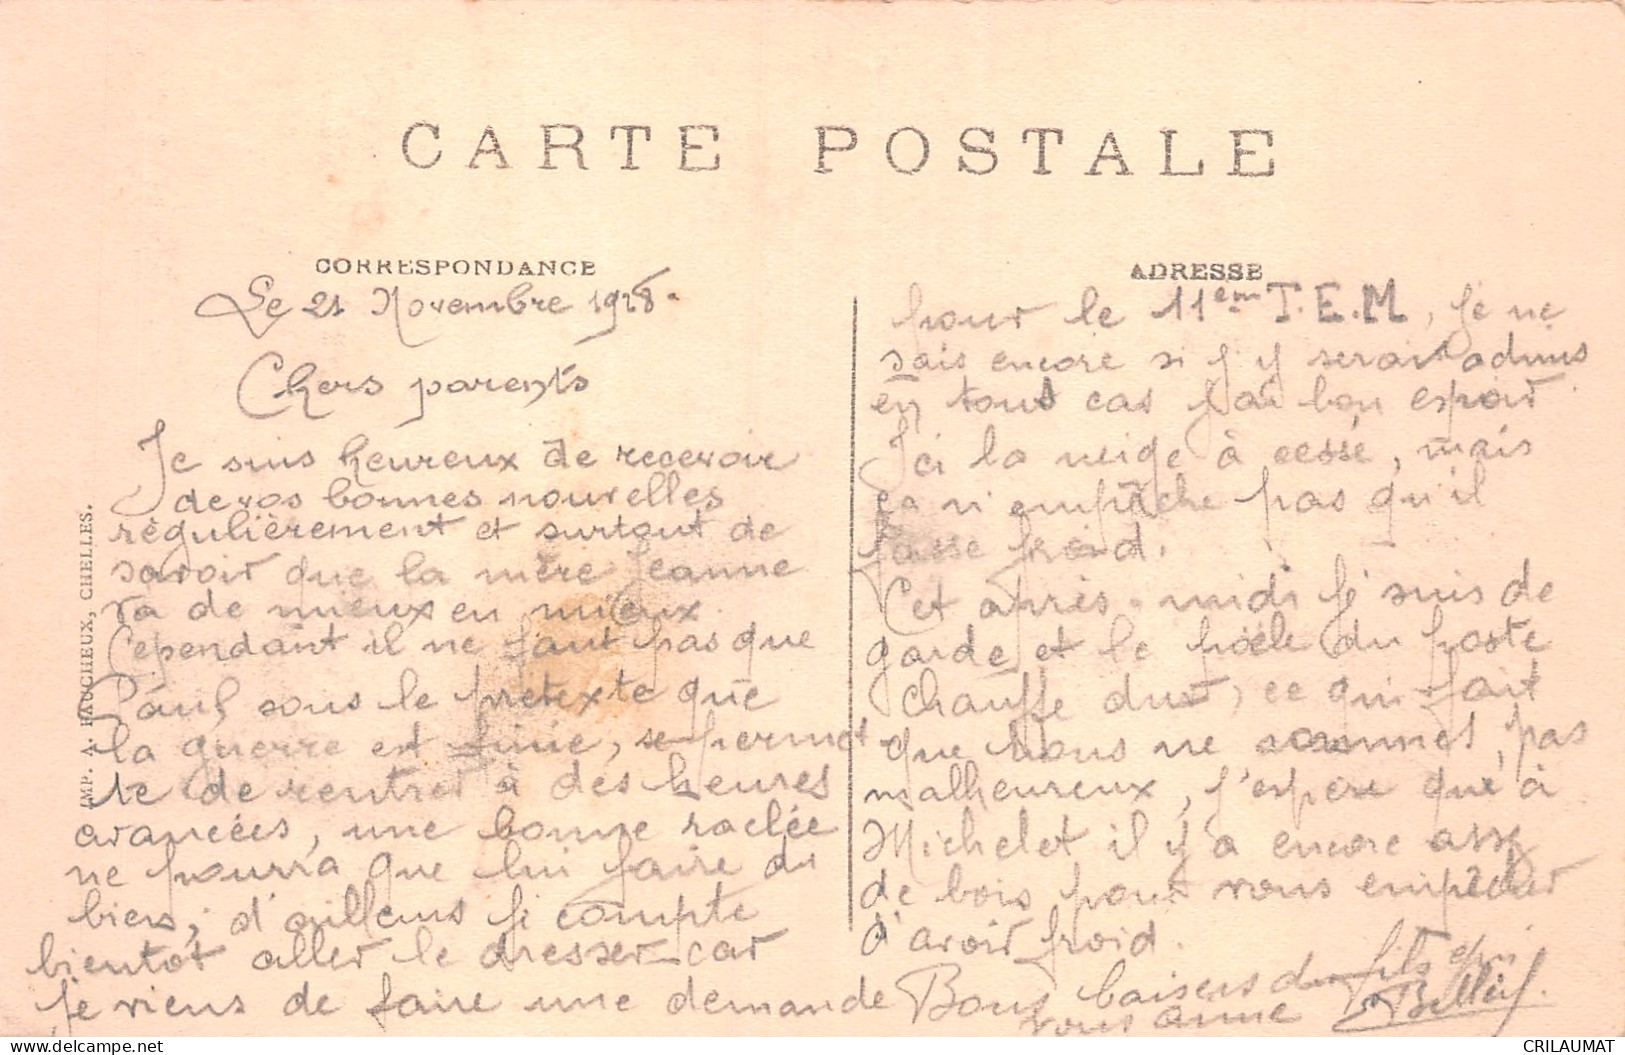 CARTE POSTALE
CORRESPONDANCE
Le 21 Novembre 1918.
Chers parents
Je suis heureux de recevoir
de vos bonnes nouvelles
régulièrement et surtout de
savoir que la mère Jeanne
va de mieux en mieux
Cependant il ne faut pas que
Paul, sous le prétexte que
la guerre est finie, se permet
te de rentrer à des heures
avancées, une bonne raclée
ne pourra que lui faire du
bien, d'ailleurs je compte
bientôt aller le dresser car
je viens de faire une demande
ADRESSE
pour le 11em T.E.M, je ne
sais encore si j'y serait admis
en tout cas j'ai bon espoir.
Ici la neige à cessé, mais
ça n'empêche pas qu'il
fasse froid.
Cet après-midi je suis de
garde et le poële du poste
chauffe dur, ce qui fait
que nous ne sommes pas
malheureux, j'espère que à
Michelet il y a encore assez
de bois pour vous empêcher
d'avoir froid.
Bons baisers du fils qui
vous aime
IMP. A. FAUCHEUX, CHELLES.
delcampe.net
CRILAUMAT